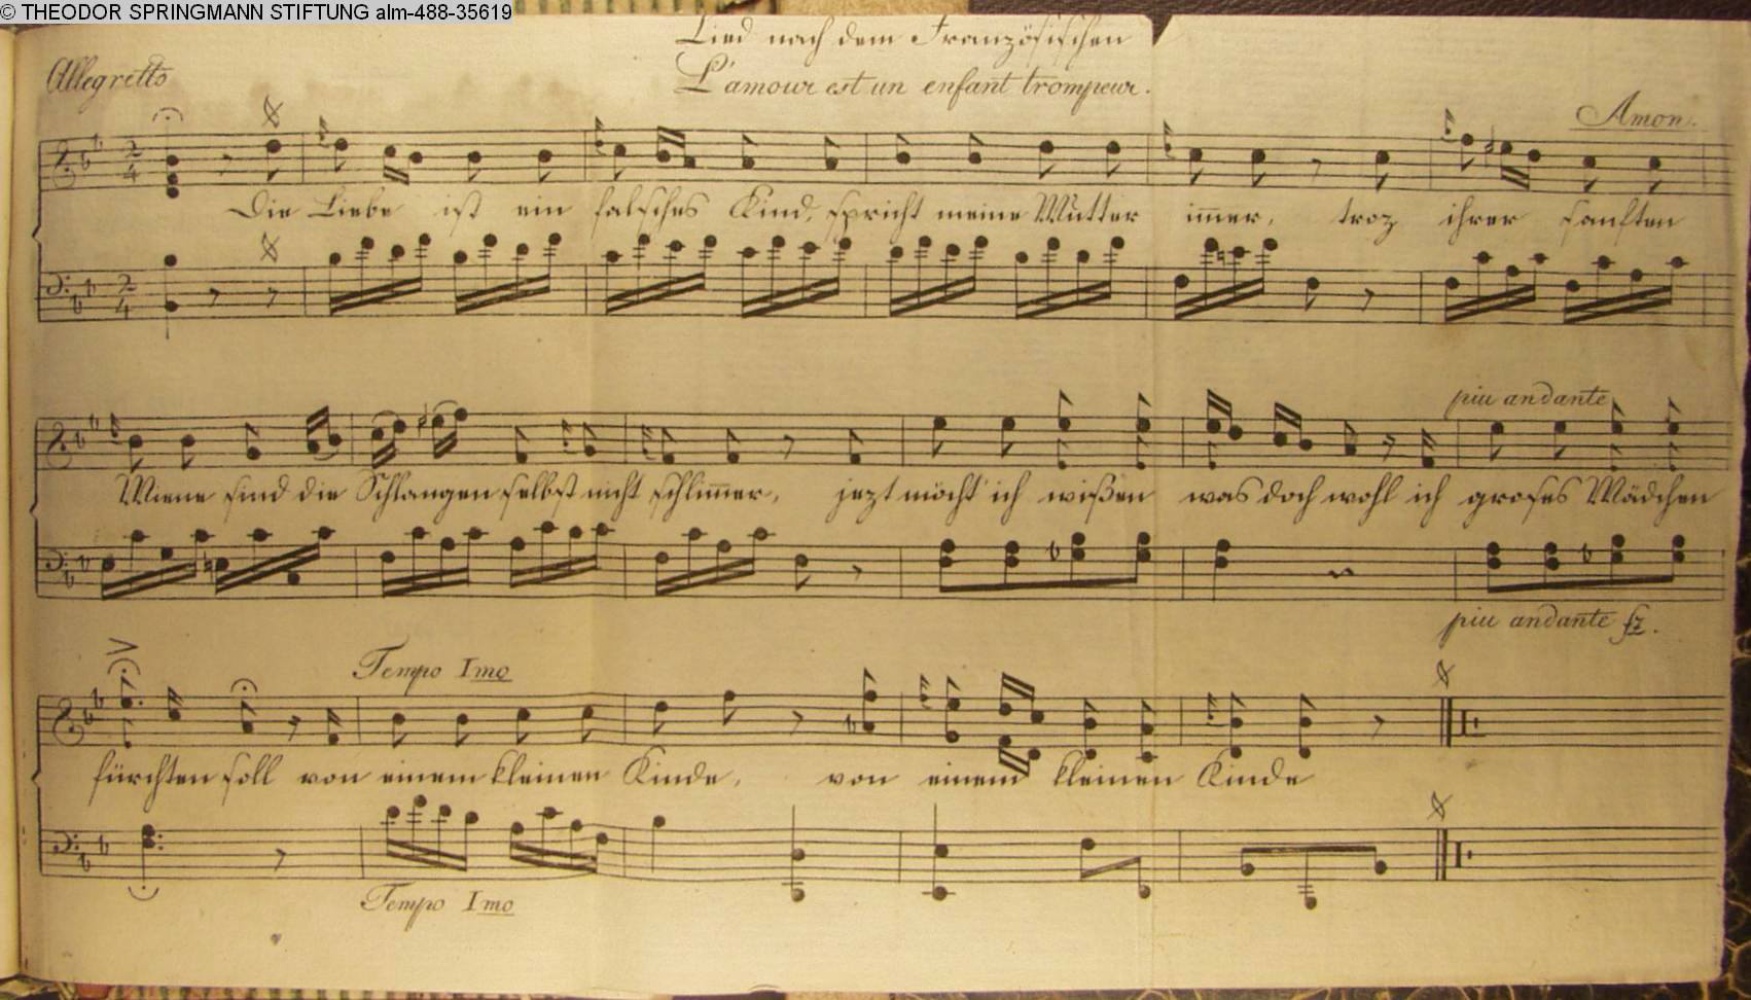 © THEODOR SPRINGMANN STIFTUNG alm-488-35619
Lied nach dem Französischen
L'amour est un enfant trompeur.
Allegretto
Amon.
2/4
Die Liebe ist ein falsches Kind, spricht meine Mutter im̅er, troz ihrer sanften
2/4
piu andante
Miene sind die Schlangen selbst nicht schlim̅er, jezt möcht' ich wißen was doch wohl ich großes Mädchen
piu andante fz.
Tempo Imo
fürchten soll von einem kleinen Kinde, von einem kleinen Kinde
Tempo Imo